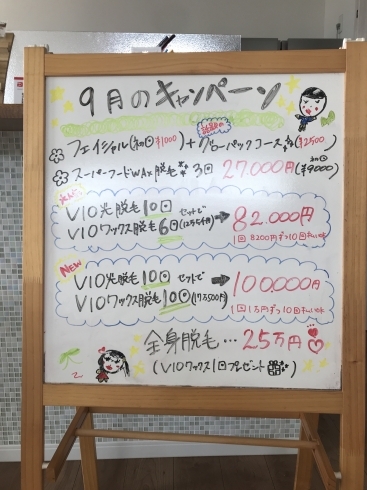 9月のキャンペーン
話題の
フェイシャル(初回¥1000)+グローパックコース(¥2500)
スーパーフードWAX脱毛 3回 27.000円(初回¥9000)
VIO光脱毛10回 セットで
VIOワックス脱毛6回 → 82.000円
1回8200円ずつ10回払いOK
NEW
VIO光脱毛10回 セットで
VIOワックス脱毛10回(17万500円) → 100000円
1回1万円ずつ10回払いOK
全身脱毛…25万円
(VIOワックス1回プレゼント)